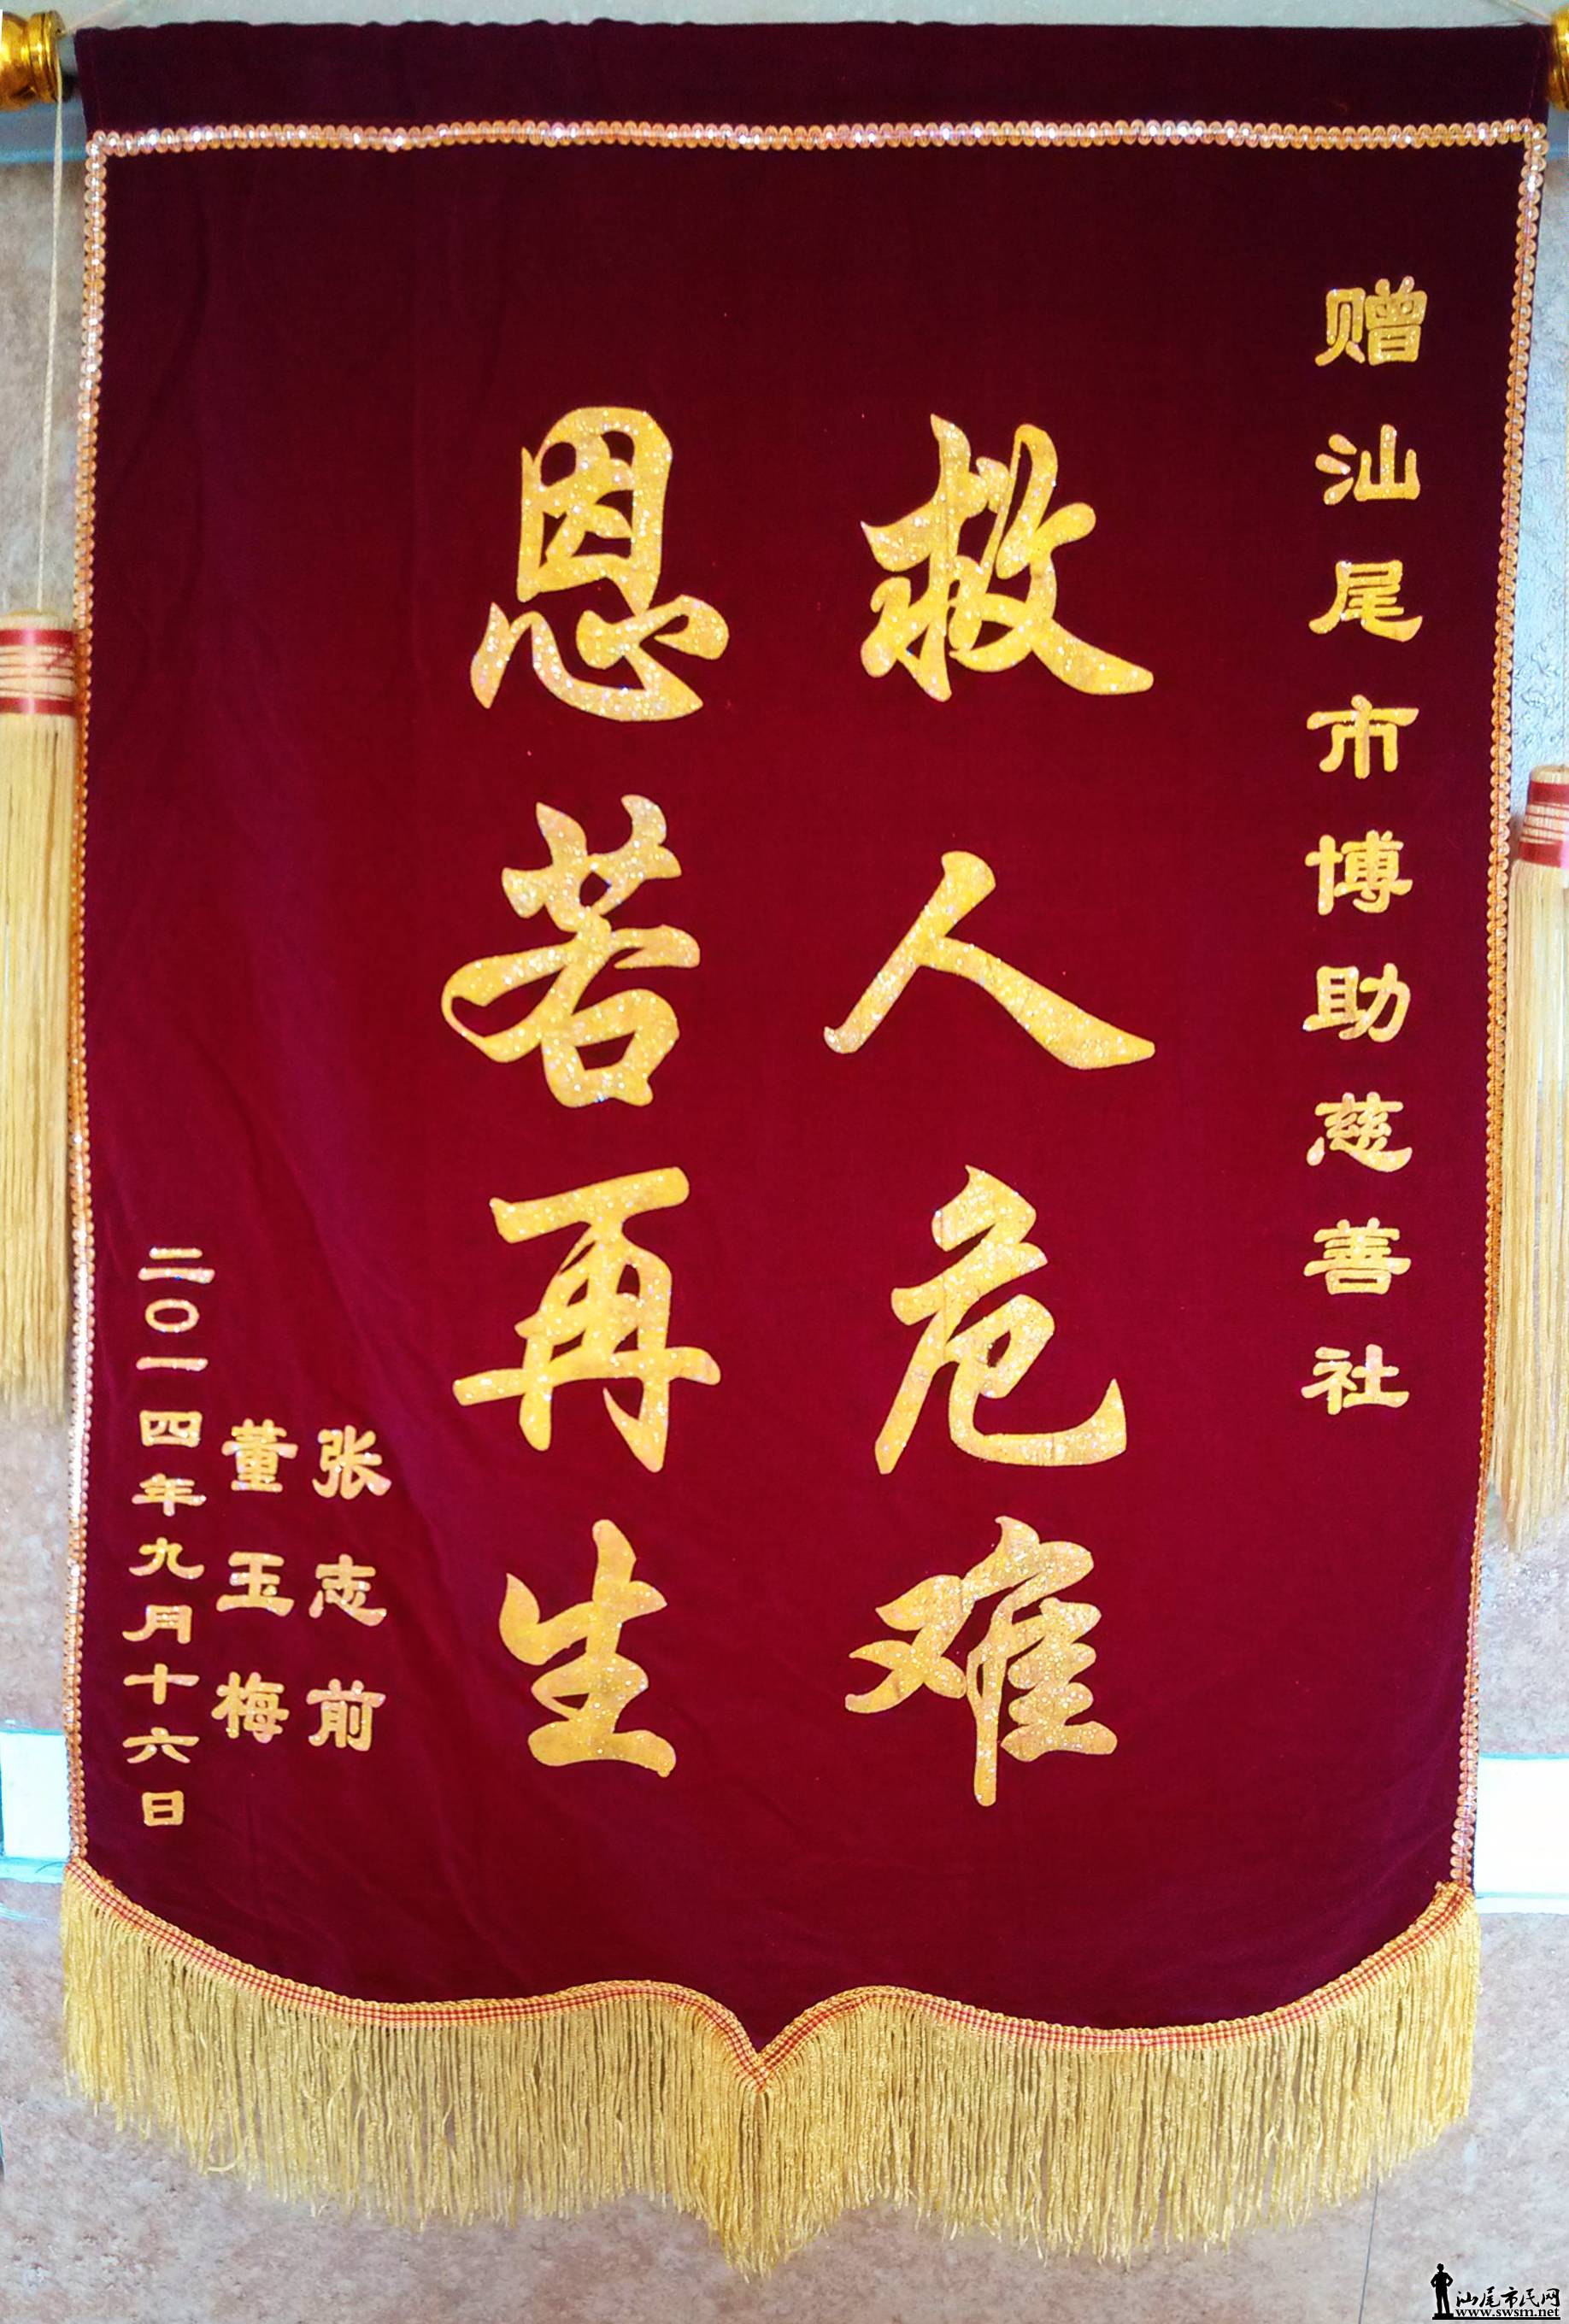 赠汕尾市博助慈善社
救人危难
恩若再生
张志前
董玉梅
二〇一四年九月十六日
汕尾市民网
www.swsm.net